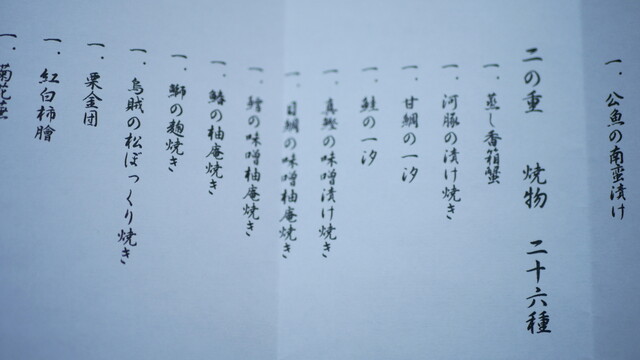 一．公魚の南蛮漬け
二の重　焼物　二十六種
一．蒸し香箱蟹
一．河豚の漬け焼き
一．甘鯛の一汐
一．鮭の一汐
一．真鰹の味噌漬け焼き
一．目鯛の味噌柚庵焼き
一．鱈の味噌柚庵焼き
一．鰆の柚庵焼き
一．鰤の麹焼き
一．烏賊の松ぼっくり焼き
一．栗金団
一．紅白柿膾
一．菊花蕪